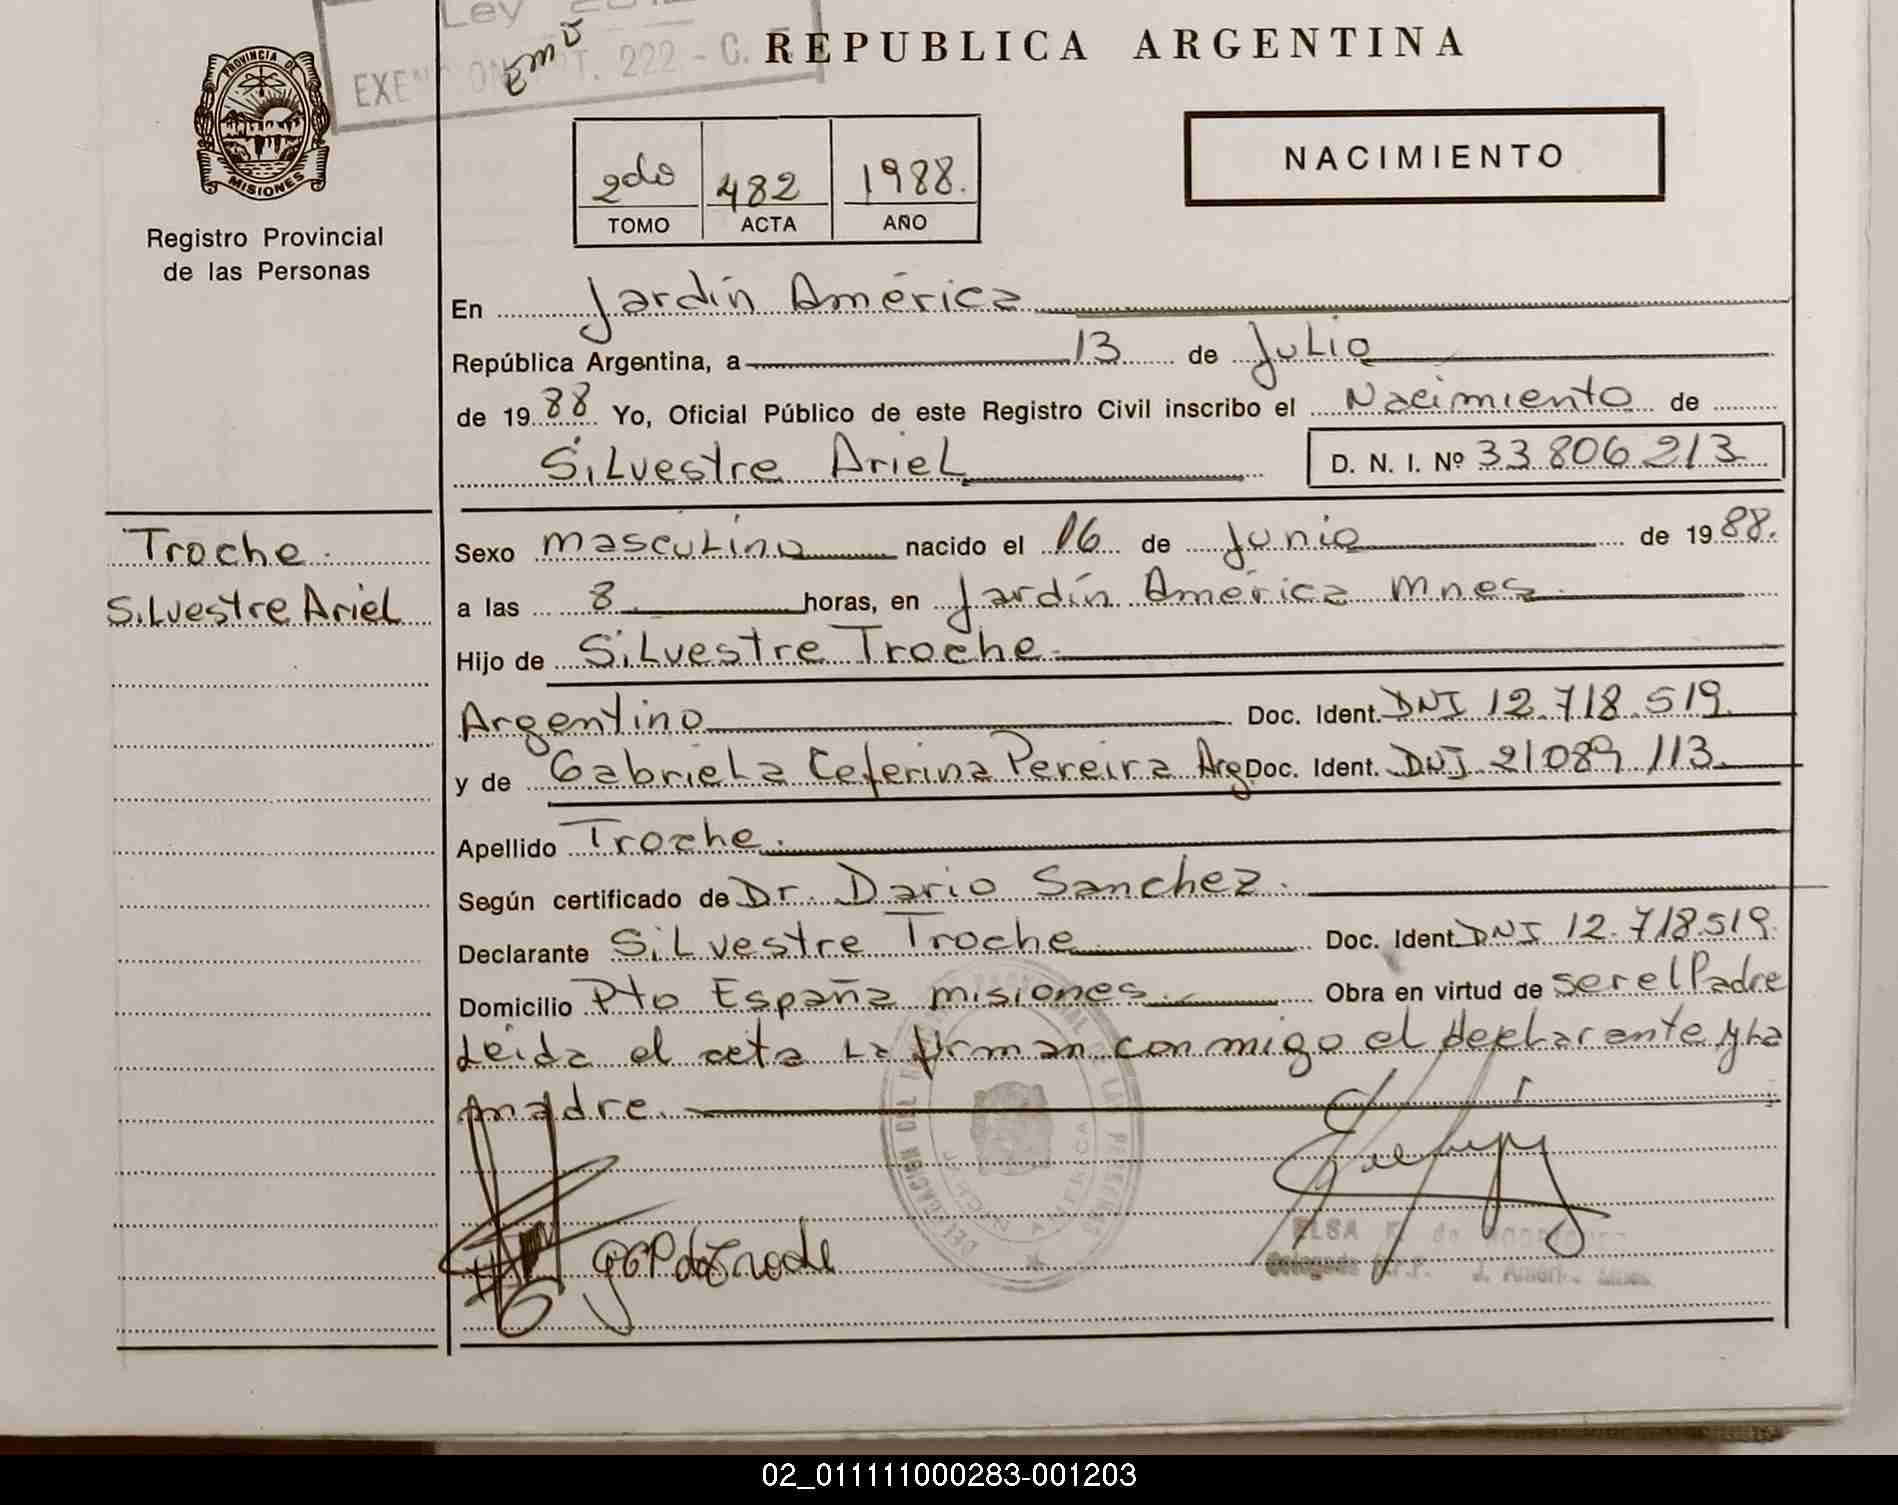 Ley
EXENCION ART. 222 - C.
REPUBLICA ARGENTINA
PROVINCIA DE
MISIONES
Registro Provincial
de las Personas
NACIMIENTO
2do 482 1988.
TOMO ACTA AÑO
En Jardín América
República Argentina, a 13 de Julio
de 1988 Yo, Oficial Público de este Registro Civil inscribo el Nacimiento de
Silvestre Ariel D. N. I. Nº 33 806 213
Troche
Silvestre Ariel
Sexo masculino nacido el 16 de Junio de 1988.
a las 8 horas, en Jardín América Mnes
Hijo de Silvestre Troche
Argentino Doc. Ident. DNI 12.718.519
y de Gabriela Ceferina Pereira Arg Doc. Ident. DNI 21089 113
Apellido Troche
Según certificado de Dr. Dario Sanchez
Declarante Silvestre Troche Doc. Ident DNI 12.718519
Domicilio Pto España misiones Obra en virtud de ser el Padre
Leida el acta la firman conmigo el declarante y la
madre.
ELSA K. de
Delegada R.P.P. J. América Mnes.
02_011111000283-001203